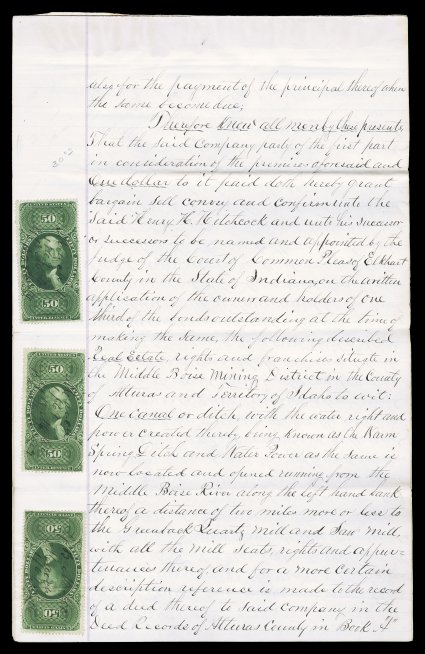 also for the payment of the principal thereof when
the same become due;
Therefore Know all men by these presents,
That the said Company party of the first part
in consideration of the premises aforesaid and
One dollar to it paid doth hereby grant
bargain sell convey and confirm unto the
said Henry H. Hitchcock and unto his successor
or successors to be named and appointed by the
Judge of the Court of Common Pleas of Elkhart
County in the State of Indiana, on the written
application of the owners and holders of one
third of the bonds outstanding at the time of
making the same, the following described
Real Estate, rights and franchises situate in
the Middle Boise Mining District in the County
of Alturas and Territory of Idaho to wit:
One canal or ditch, with the water right and
power created thereby being known as the Warm
Spring Ditch and Water Power as the same is
now located and opened running from the
Middle Boise River along the left hand bank
thereof a distance of two miles more or less to
the Greenback Quartz Mill and Saw Mill,
with all the Mill Seats, rights and appur-
tenances thereof, and for a more certain
description reference is made to the record
of a deed thereof to said company in the
Deed Records of Alturas County in Book "A"
50
50
50
50
50
50